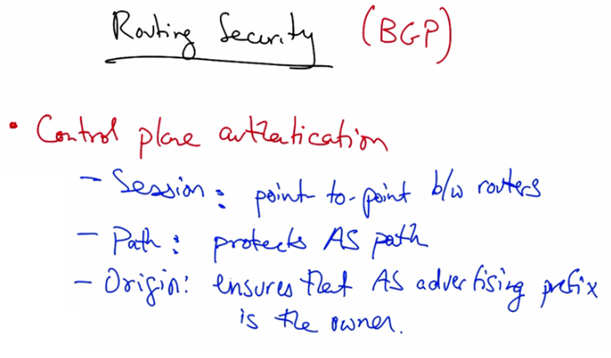 Routing Security (BGP)
• Control plane authentication
- Session: point-to-point b/w routers
- Path: protects AS path
- Origin: ensures that AS advertising prefix
is the owner.